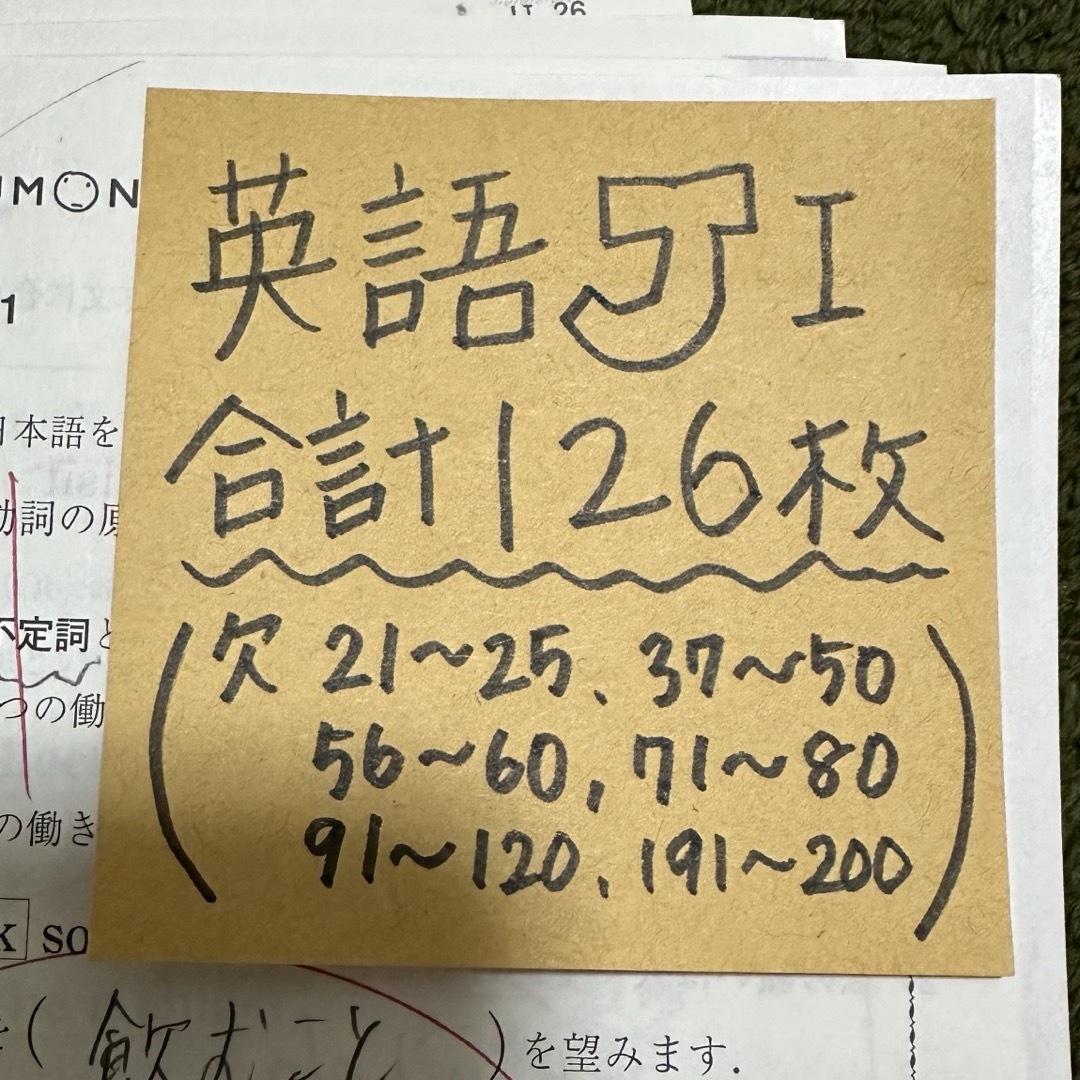 英語 J I
合計126枚
(欠 21～25、37～50
56～60, 71～80
91～120, 191～200)
UMON
1
日本語を
動詞の原
不定詞と
つの働
の働き
SO
(飲むこと)を望みます.